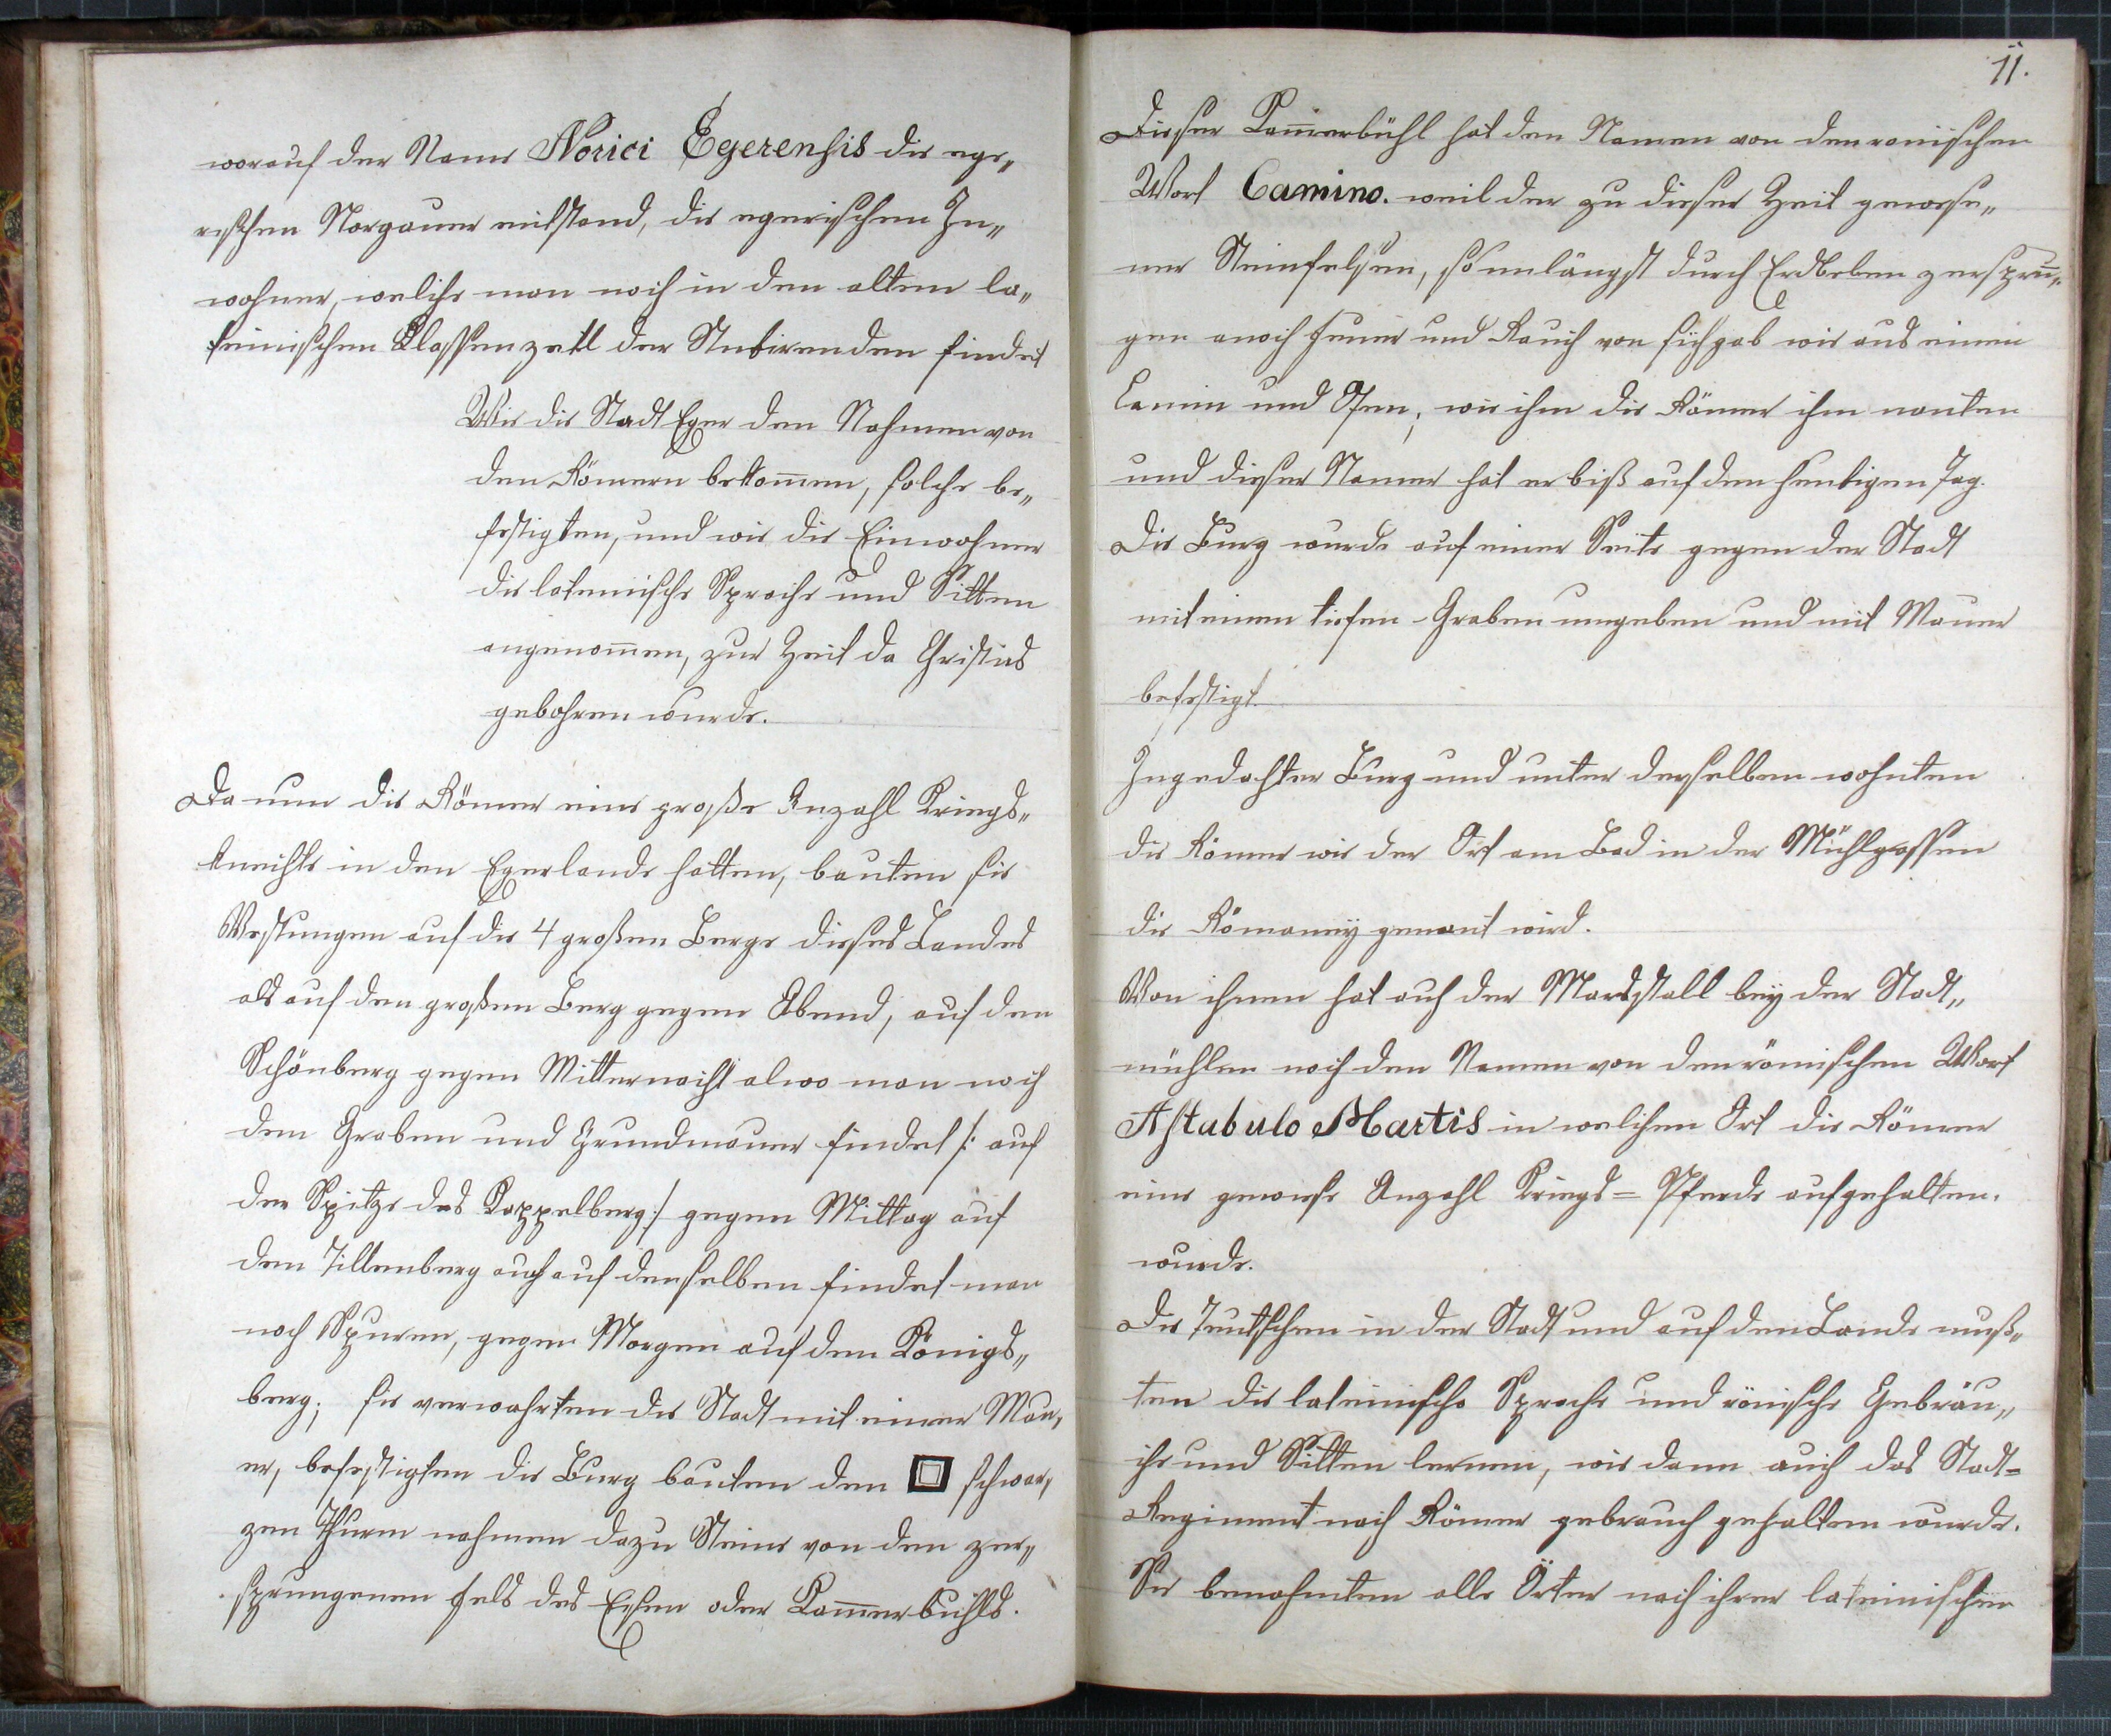 worauf der Name Norici Egerensis die ege„
rischen Norgauer entstand, die egerischen In„
wohner, welche man noch in den alten la„
teinischen Classenzettl der Studirenden findet
Wie die Stadt Eger den Nahmen von
den Römern bekom̄en, solche be„
festigten, und wie die Einwohner
die lateinische Sprache und Sitten
angenom̄en, zur Zeit da Christus
gebohren wurde.
Da nun die Römer eine große Anzahl Kriegs„
knechte in den Egerlande hatten, bauten sie
Vestungen auf die 4 großen Berge dieses Landes
als auf den großen Berg gegen Abend, auf den
Schönberg gegen Mitternacht alwo man noch
den Graben und Grundmauer findet /: auf
der Spitze des Kappelberg :/ gegen Mittag auf
den Tillenberg auch auf denselben findet man
noch Spuren, gegen Morgen auf den Königs„
berg; sie verwahrten die Stadt mit einer Mau„
er, befestigten die Burg bauten den schwar„
zen Thurm nahmen dazu Steine von den zer„
sprungenen Fels des Essen oder Kam̄erbühls.
11.
Dieser Kam̄erbühl hat den Namen von den romischen
Wort Camino. weil der zu dieser Zeit gewese„
ner Steinfelsen, so unlängst durch Erdbeben zersprun̄„
gen anoch Feuer und Rauch von sich gab wie aus einen
Camin und Ofen; wie ihm die Römer ihm nanten
und dieser Namen hat er biß auf den heutigen Tag.
Die Burg wurde auf einer Seite gegen der Stadt
mit einen tiefen Graben umgeben und mit Mauer
befestigt.
In gedachter Burg und unter derselben wohnten
die Römer wie der Ort am Bad in der Mühlgassen
die Römaney genant wird.
Von ihnen hat auch der Marsstall bey der Stadt„
mühlen noch den Namen von den römischen Wort
Astabulo Martis in welchen Ort die Römer
eine gewiese Anzahl Kriegs= Pferde aufgehalten.
wurde.
Die Teutschen in der Stadt und auf den Lande muß„
ten die lateinische Sprache und römische Gebräu„
che und Sitten lernen, wie dann auch das Stadt=
Regiment nach Römer gebrauch gehalten wurde.
Sie benahmten alle Örter nach ihrer lateinischen